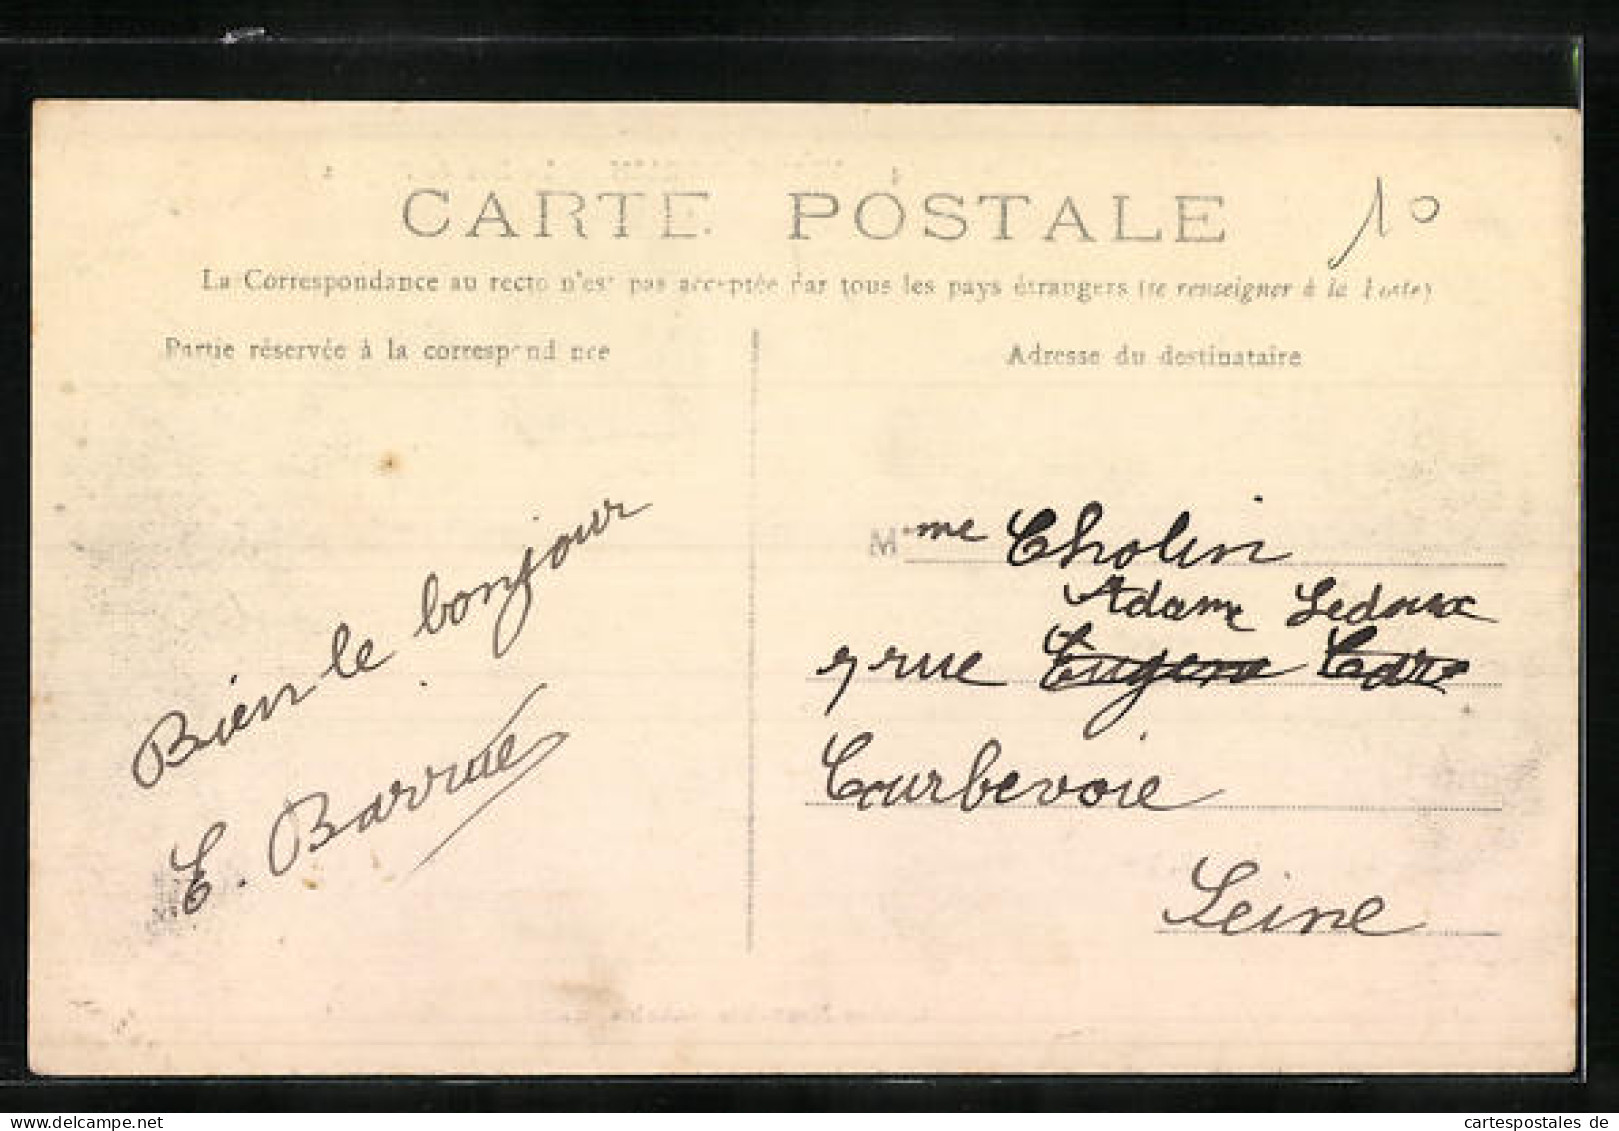 CARTE POSTALE
10
La Correspondance au recto n'est pas acceptée par tous les pays étrangers (se renseigner à la Poste)
Partie réservée à la correspondance
Adresse du destinataire
Bien le bonjour
E. Barrué
Mme Cholin
Adam Ledoux
7 rue Eugene Caré
Courbevoie
Seine
cartespostales de